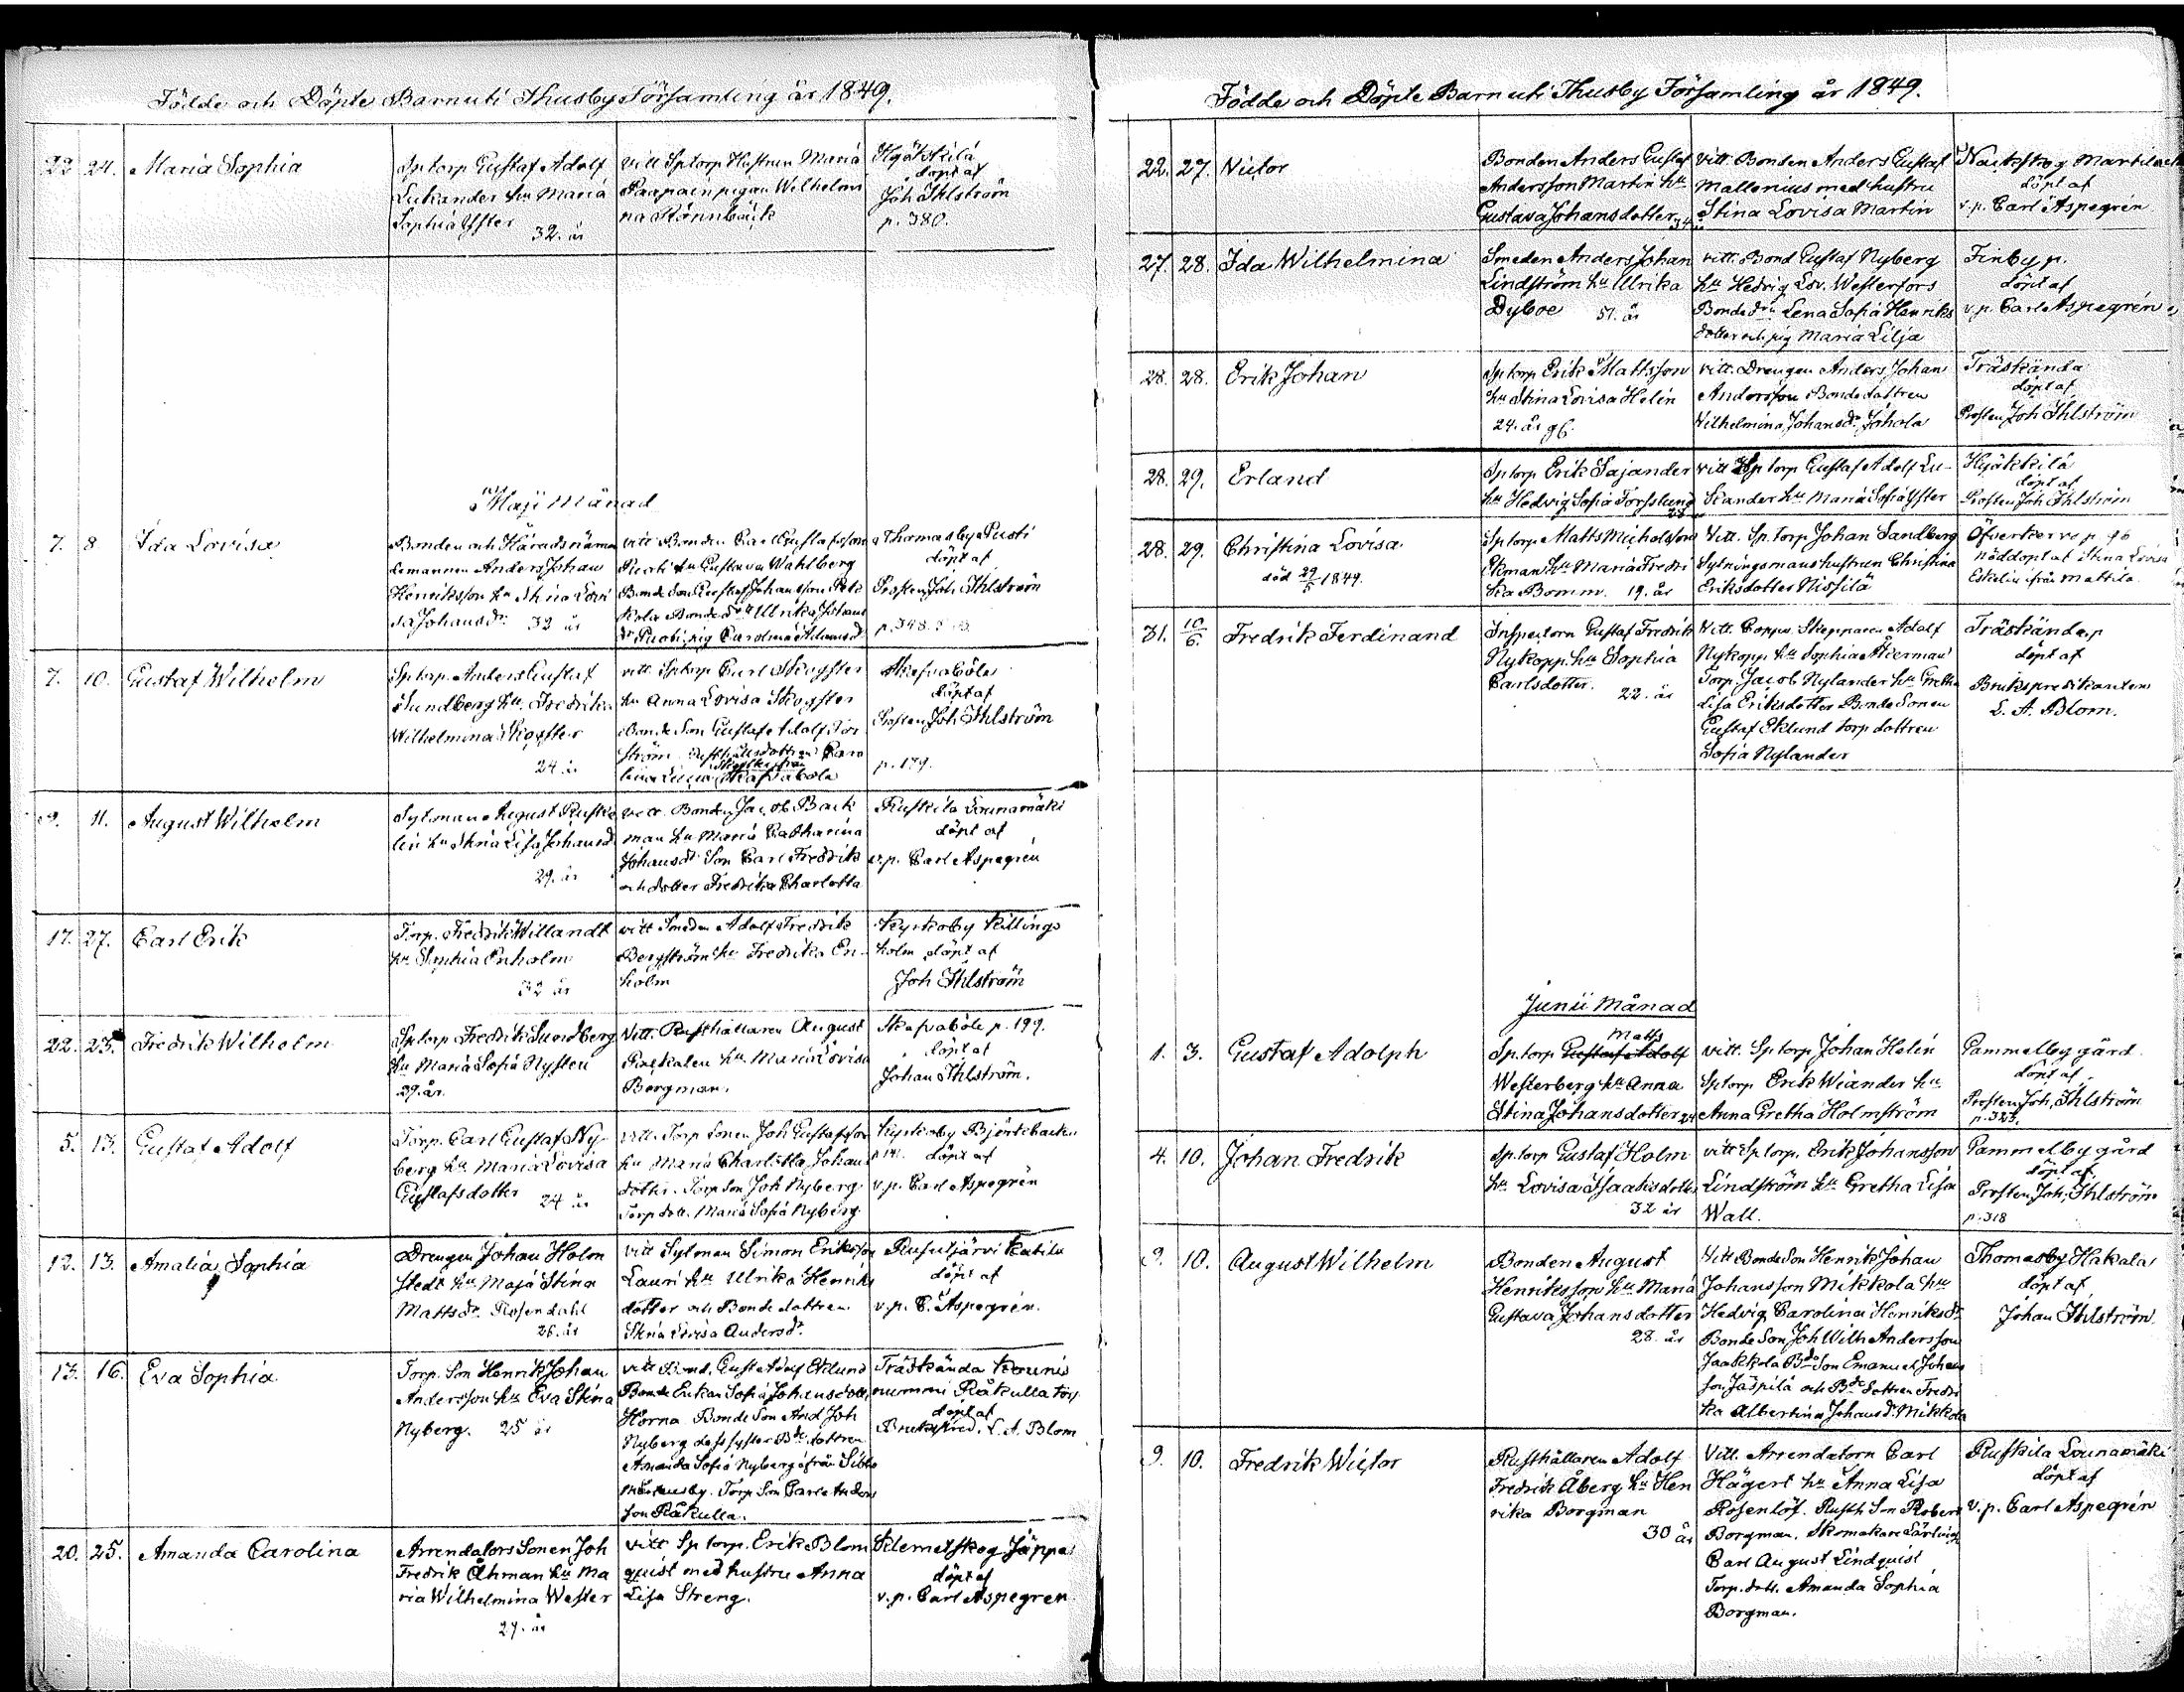 Födde och Döpte Barn uti Thusby Församling år 1849.
22. 24. Maria Sophia
Sptorp Gustaf Adolf
Lukander hu Maria
Sophia Yfter 32. år
vitt Sptorp Hustrun Maria
Paapain pigan Wilhelmi
na Rönnbäck
Hyökkilä
döpt af
Joh Ihlström
p. 380.
Maji Månad
7. 8. Ida Lovisa
Bonden och Häradsnämn
demannen Anders Johan
Henriksson hu Stina Lovi
sa Johansdr 32 år
vitt Bonden Carl Gustafsson
Pusti hu Gustava Wahlberg
Bonde Son Gustaf Johansson Pek
kola Bonde dotr Ulrika Johans
dr Pusti, pig Carolina Adamsdr
Thomasby Pusti
döpt af
Prosten Joh Ihlström
p. 348.
7. 10. Gustaf Wilhelm
Sptorp. Anders Gustaf
Sundberg hu. Fredrika
Wilhelmina Skogster
24. år
vitt. Sptorp Carl Skogster
hu Anna Lovisa Skogster
Bonde Son Gustaf Adolf Tör
ström Rusthållsdottren Caro
lina Skafvaböle
Skafvaböle
döpt af
Prosten Joh Ihlström
p. 179.
9. 11. August Wilhelm
Sytman August Ruske
lin hu Stina Lisa Johansdr
29. år
vitt. Bonden Jacob Back
man hu Maria Catharina
Johansdr Son Carl Fredrik
och dotter Fredrika Charlotta
Ruskila Lounamäki
döpt af
v.p. Carl Aspegrén
17. 27. Carl Erik
Torp. Fredrik Willandt
hu Sophia Enholm
32 år
vitt Smeden Adolf Fredrik
Bergström hu Fredrika En-
holm
Kyrkoby Killings
holm döpt af
Joh Ihlström
22. 25. Fredrik Wilhelm
Sptorp Fredrik Sundberg
hu Maria Sofia Nysten
29. år.
Vitt. Rusthållaren August
Raekalen hu Maria Lovisa
Borgman.
Skafvaböle p. 199.
döpt af
Johan Ihlström.
5. 13. Gustaf Adolf
Torp. Carl Gustaf Ny-
berg hu Maria Lovisa
Gustafsdotter 24 år
vitt. Torp Sonen Joh Gustafsson
hu Maria Charlotta Johans
dotter. Torp Son Joh Nyberg
Torp dott. Maria Sofia Nyberg
Kyrkoby Björkbacka
p 141. döpt af
v.p. Carl Aspegrén
12. 13. Amalia Sophia
Drengen Johan Holm
stedt hu Maja Stina
Mattsdr. Rosendahl
26. år
vitt Sytman Simon Eriksson
Lauri hu Ulrika Henriks
dotter och Bonde dottren
Stina Lovisa Andersdr.
Rusutjärvi Katila
döpt af
v.p. C. Aspegrén.
13. 16. Eva Sophia
Torp. Son Henrik Johan
Andersson hu Eva Stina
Nyberg. 25 år
vitt Bond. Gust Adolf Eklund
Bonde Enkan Sofia Johansdott.
Horna Bonde Son And Joh
Nyberg dess syster Bde dottren
Amanda Sofia Nyberg ifrån Sibbo
Mårtensby. Torp Son Carl Anders
son Råkulla.
Träskända Kaunis
nummi Råkulla torp
döpt af
Brukspred. L. A. Blom
20. 25. Amanda Carolina
Arrendators Sonen Joh
Fredrik Öhman hu Ma
ria Wilhelmina Wester
27. år
vitt Sptorp. Erik Blom
quist med hustru Anna
Lisa Streng.
Klemetskog Jäppa
döpt af
v.p. Carl Aspegren
Födde och Döpte Barn uti Thusby Församling år 1849.
22. 27. Victor
Bonden Anders Gustaf
Andersson Martin hu
Gustava Johansdotter 34
Vitt. Bonden Anders Gustaf
Mallenius med hustru
Stina Lovisa Martin
Nackskog Martila
döpt af
v.p. Carl Aspegrén
27. 28. Ida Wilhelmina
Smeden Anders Johan
Lindström hu Ulrika
Dyboe 51. år
vitt. Bond Gustaf Nyberg
hu Hedvig Lov. Westerfors
Bonde dr Lena Sofia Henriks
dotter och pig Maria Lilja
Finby p.
döpt af
v.p. Carl Aspegrén
28. 28. Erik Johan
Sptorp Erik Mattsson
hu Stina Lovisa Helin
24. år
vitt. Drengen Anders Johan
Andersson Bonde dottren
Wilhelmina Johansdr Johola
Träskända
döpt af
Prosten Joh Ihlström
28. 29. Erland
Sptorp Erik Sajander
hu Hedvig Sofia Forsslund
28
vitt Sptorp Gustaf Adolf Lu-
kander hu Maria Sofia Yfter
Hyökkilä
döpt af
Prosten Joh Ihlström
28. 29. Christina Lovisa.
död 29/5 1849.
Sptorp Matts Michelsson
Ekman hu Maria Fredri
ka Bomm. 19. år
Vitt. Sp. torp Johan Sandberg
Sytningsmans hustrun Christina
Eriksdotter Nissilä
Öfverkervo p. 96
nöddöpt af Stina Lovisa
Eskelin ifrån Mattila.
31. 10/6. Fredrik Ferdinand
Inspectorn Gustaf Fredrik
Nykopp. hu Sophia
Carlsdotter. 22. år
Vitt. Copps. Skepparen Adolf
Nykopp hu Sophia Åkerman
Torp. Jacob Nylander hu Greta
Lisa Eriksdotter Bonde Sonen
Gustaf Eklund torp dottren
Sofia Nylander
Träskända p
döpt af
Brukspredikanten
L. A. Blom.
Junii Månad
1. 3. Gustaf Adolph
Matts
Sp. torp Gustaf Adolf
Westerberg hu Anna
Stina Johansdotter 24
vitt. Sptorp Johan Helin
Sptorp Erik Wiander hu
Anna Gretha Holmström
Gammelby gård.
döpt af
Prosten Joh, Ihlström
p. 323.
4. 10. Johan Fredrik
Sp. torp Gustaf Holm
hu Lovisa Isaaksdotter
32 år
vitt Sptorp. Erik Johansson
Lindström hu Gretha Lisa
Wall.
Gammelby gård
döpt af
Prosten Joh, Ihlström
p. 318
9. 10. August Wilhelm
Bonden August
Henriksson hu Maria
Gustava Johansdotter
28. år
Vitt Bonde Son Henrik Johan
Johansson Mikkola hu
Hedvig Carolina Henriksdr
Bonde Son Joh Wilh Andersson
Jaakkola Bde Son Emanuel Johans
son Jäspilä och Bde dottren Fredri
ka Albertina Johansdr. Mikkola
Thomasby Hakala
döpt af
Johan Ihlström.
9. 10. Fredrik Wictor
Rusthållaren Adolf
Fredrik Åberg hu Hen
rika Borgman
30 år
Vitt. Arrendatorn Carl
Hägert hu Anna Lisa
Rosenlöf. Rusth Son Robert
Borgman. Skomakare Lärling
Carl August Lindquist
Torp. dott. Amanda Sophia
Borgman.
Ruskila Lounamäki
döpt af
v.p. Carl Aspegrén